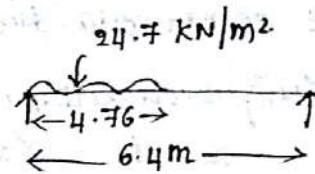 24.7 KN/m².
4.76
6.4m